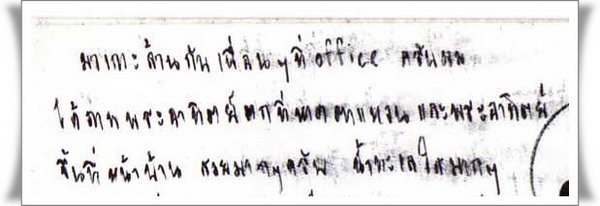 มาเกาะล้านกับเพื่อนๆที่ office ครับผม
ได้ภาพพระอาทิตย์ตกที่หาดตาแหวน และพระอาทิตย์
ขึ้นที่หน้าบ้าน สวยมากๆครับ น้ำทะเลใสมากๆ